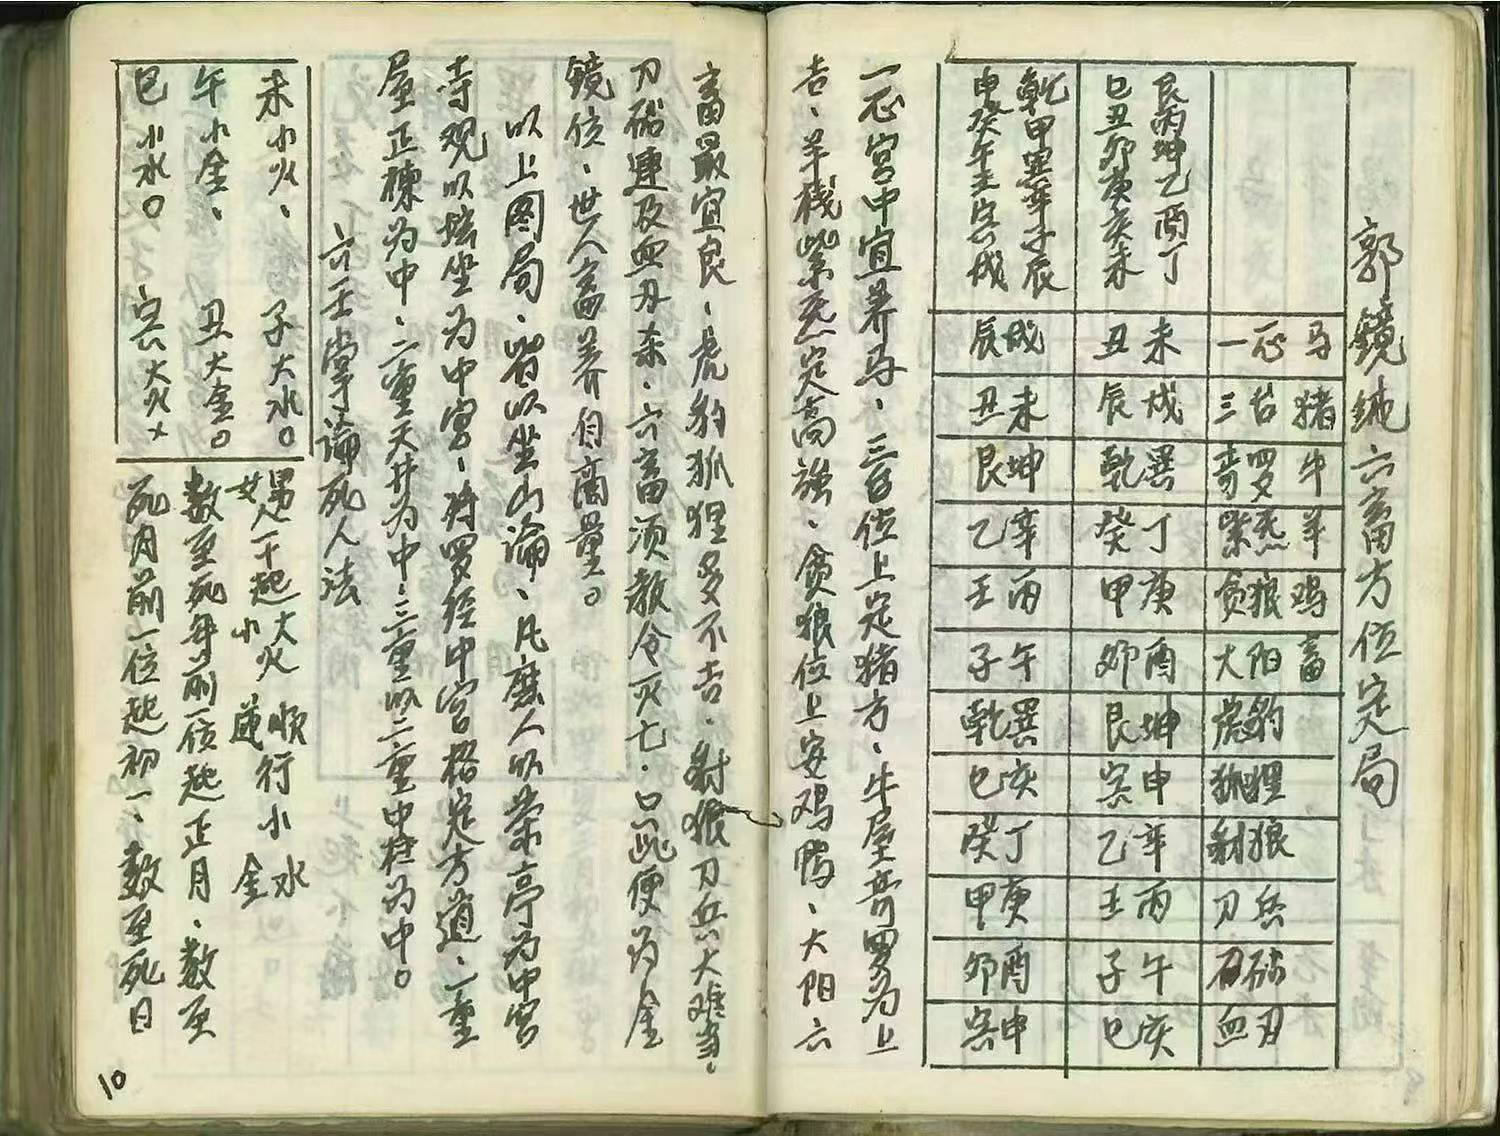 郭镜纯六畜方位定局
艮丙坤乙酉丁
巳丑卯庚亥未
乾甲巽辛子辰
申癸午壬寅戌
一心 马 丑未 辰戌
三台 猪 辰戌 丑未
奇罗 牛 乾巽 艮坤
紫炁 羊 癸丁 乙辛
贪狼 鸡 甲庚 壬丙
大阳 畜 卯酉 子午
虎豹 艮坤 乾巽
狐狸 寅申 巳亥
豺狼 乙辛 癸丁
刀兵 壬丙 甲庚
刀砧 子午 卯酉
血刃 巳亥 寅申
一心宫中宜养马、三台位上定猪方、牛屋奇罗为上
吉、羊栈紫炁定高强、贪狼位上安鸡鸭、大阳六
畜最宜良、虎豹狐狸多不吉、豺狼刀兵大难当、
刀砧连及血刃杀、六畜须教令灭亡、只此便为金
镜位、世人畜养自商量。
以上图局、皆以坐山论、凡廛人以荣亭为中宫
寺观以坛坐为中宫、将罗经中宫格定方道、一重
屋正栋为中、二重天井为中、三重以二重中柱为中。
六壬掌论死人法
未小火、 子大水。
午小金、 丑大金。
巳小水。 寅大火×
男一十起大火 顺行小水
女 小 逆 金
数至死年前一位起正月、数至
死月前一位起初一、数至死日
10